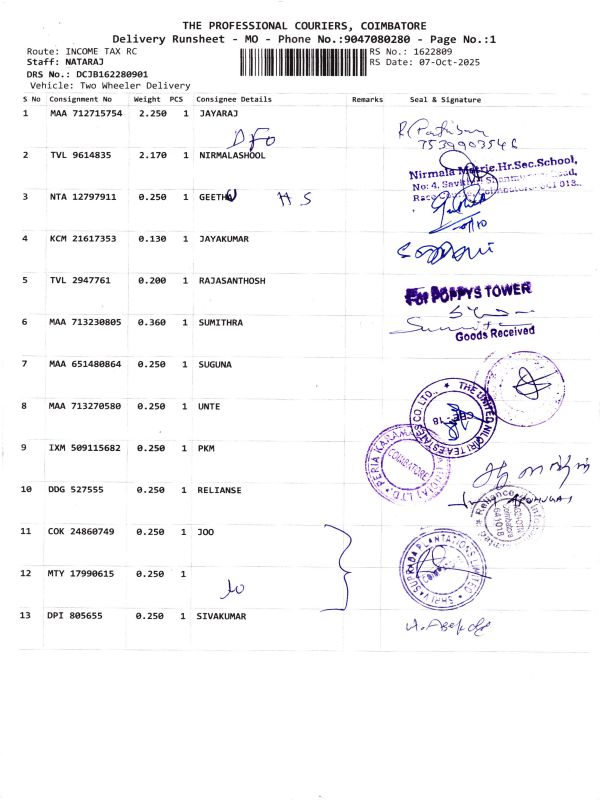 THE PROFESSIONAL COURIERS, COIMBATORE
Delivery Runsheet - MO - Phone No.:9047080280 - Page No.:1
Route: INCOME TAX RC RS No.: 1622809
Staff: NATARAJ RS Date: 07-Oct-2025
DRS No.: DCJB162280901
Vehicle: Two Wheeler Delivery
S No Consignment No Weight PCS Consignee Details Remarks Seal & Signature
1 MAA 712715754 2.250 1 JAYARAJ
DFO
7539903546
2 TVL 9614835 2.170 1 NIRMALASHOOL
Nirmala Matric.Hr.Sec.School,
No: 4, Road,
Race
3 NTA 12797911 0.250 1 GEETHU H S
4 KCM 21617353 0.130 1 JAYAKUMAR
5 TVL 2947761 0.200 1 RAJASANTHOSH
For POPPYS TOWER
6 MAA 713230805 0.360 1 SUMITHRA
Goods Received
7 MAA 651480864 0.250 1 SUGUNA
8 MAA 713270580 0.250 1 UNTE
THE UNITED NILGIRI TEA ESTATES CO. LTD.
CBE-18
9 IXM 509115682 0.250 1 PKM
PERIA KARAM LTD.
COIMBATORE
10 DDG 527555 0.250 1 RELIANSE
Reliance
641018
11 COK 24860749 0.250 1 JOO
12 MTY 17990615 0.250 1
SHRI VASUPRADA PLANTATIONS LIMITED
13 DPI 805655 0.250 1 SIVAKUMAR